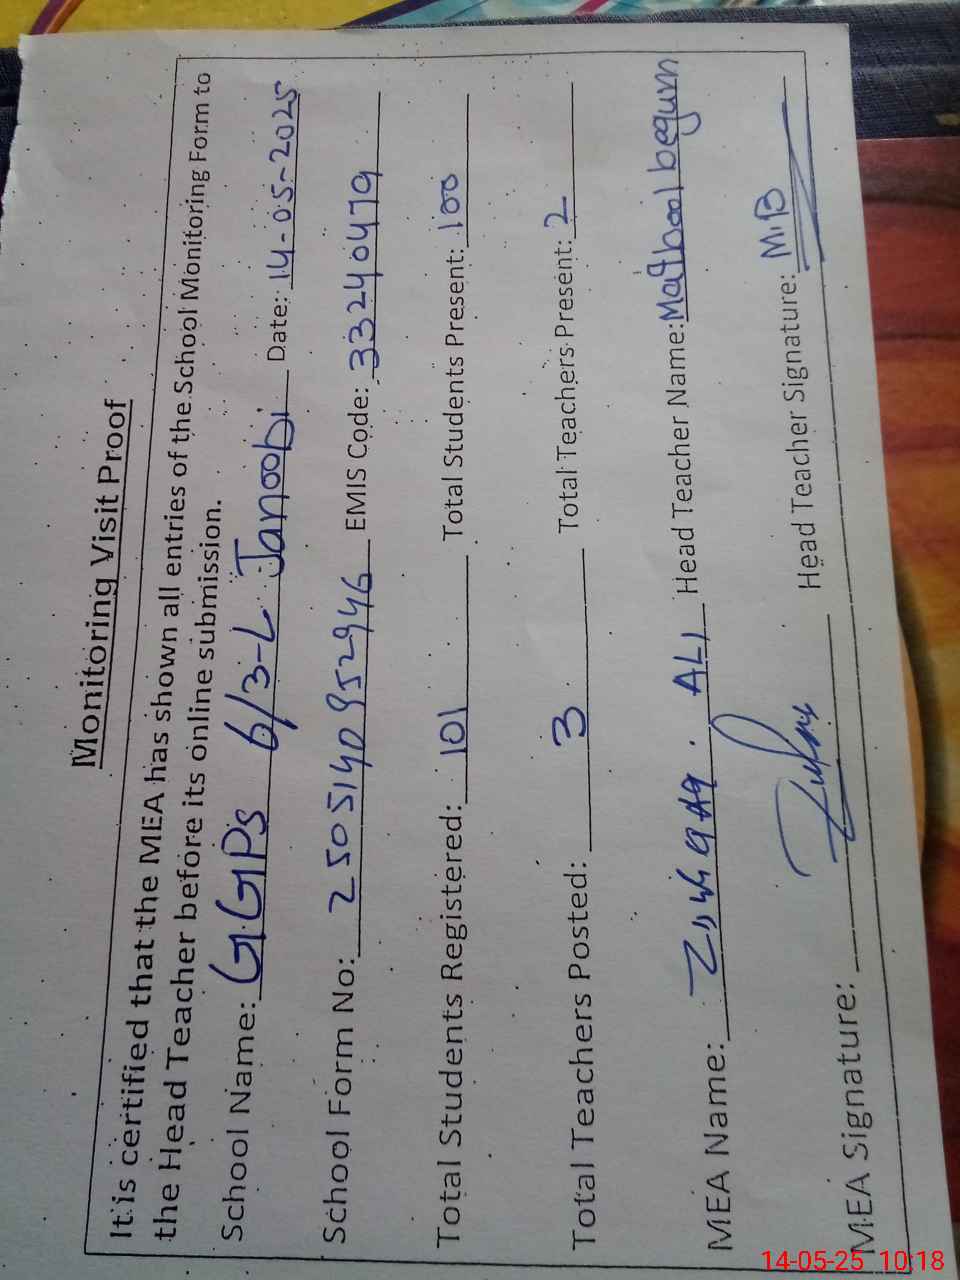 Monitoring Visit Proof
It is certified that the MEA has shown all entries of the School Monitoring Form to
the Head Teacher before its online submission.
School Name: GGPS 6/3-L Janoobi Date: 14-05-2025
School Form No: 2505140952946 EMIS Code: 33240479
Total Students Registered: 101 Total Students Present: 100
Total Teachers Posted: 3 Total Teachers Present: 2
MEA Name: ALI Head Teacher Name: Maqbool begum
MEA Signature: Head Teacher Signature: M.B
14-05-25 10:18